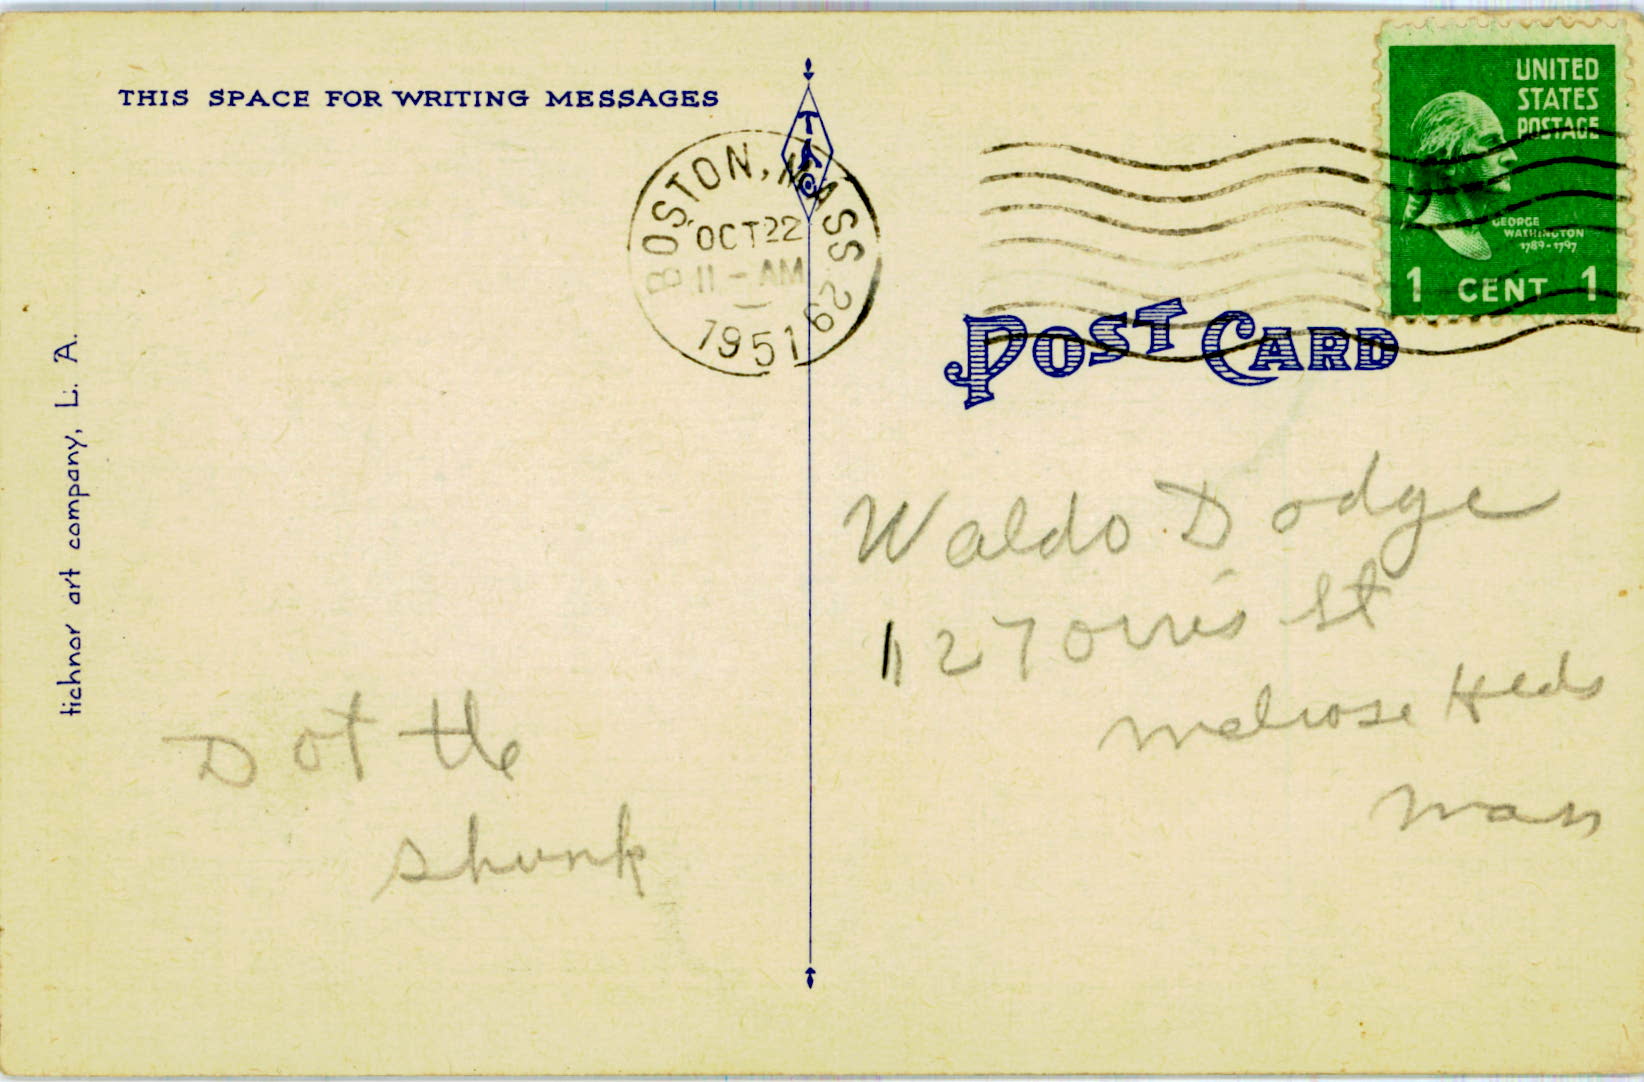 THIS SPACE FOR WRITING MESSAGES
TACO
BOSTON, MASS 29
OCT 22
11 - AM
1951
UNITED
STATES
POSTAGE
GEORGE
WASHINGTON
1789-1797
1 CENT 1
POST CARD
tichnor art company, L. A.
Waldo Dodge
127 Orris St
Melrose Hlds
Mass
Dot the
Skunk